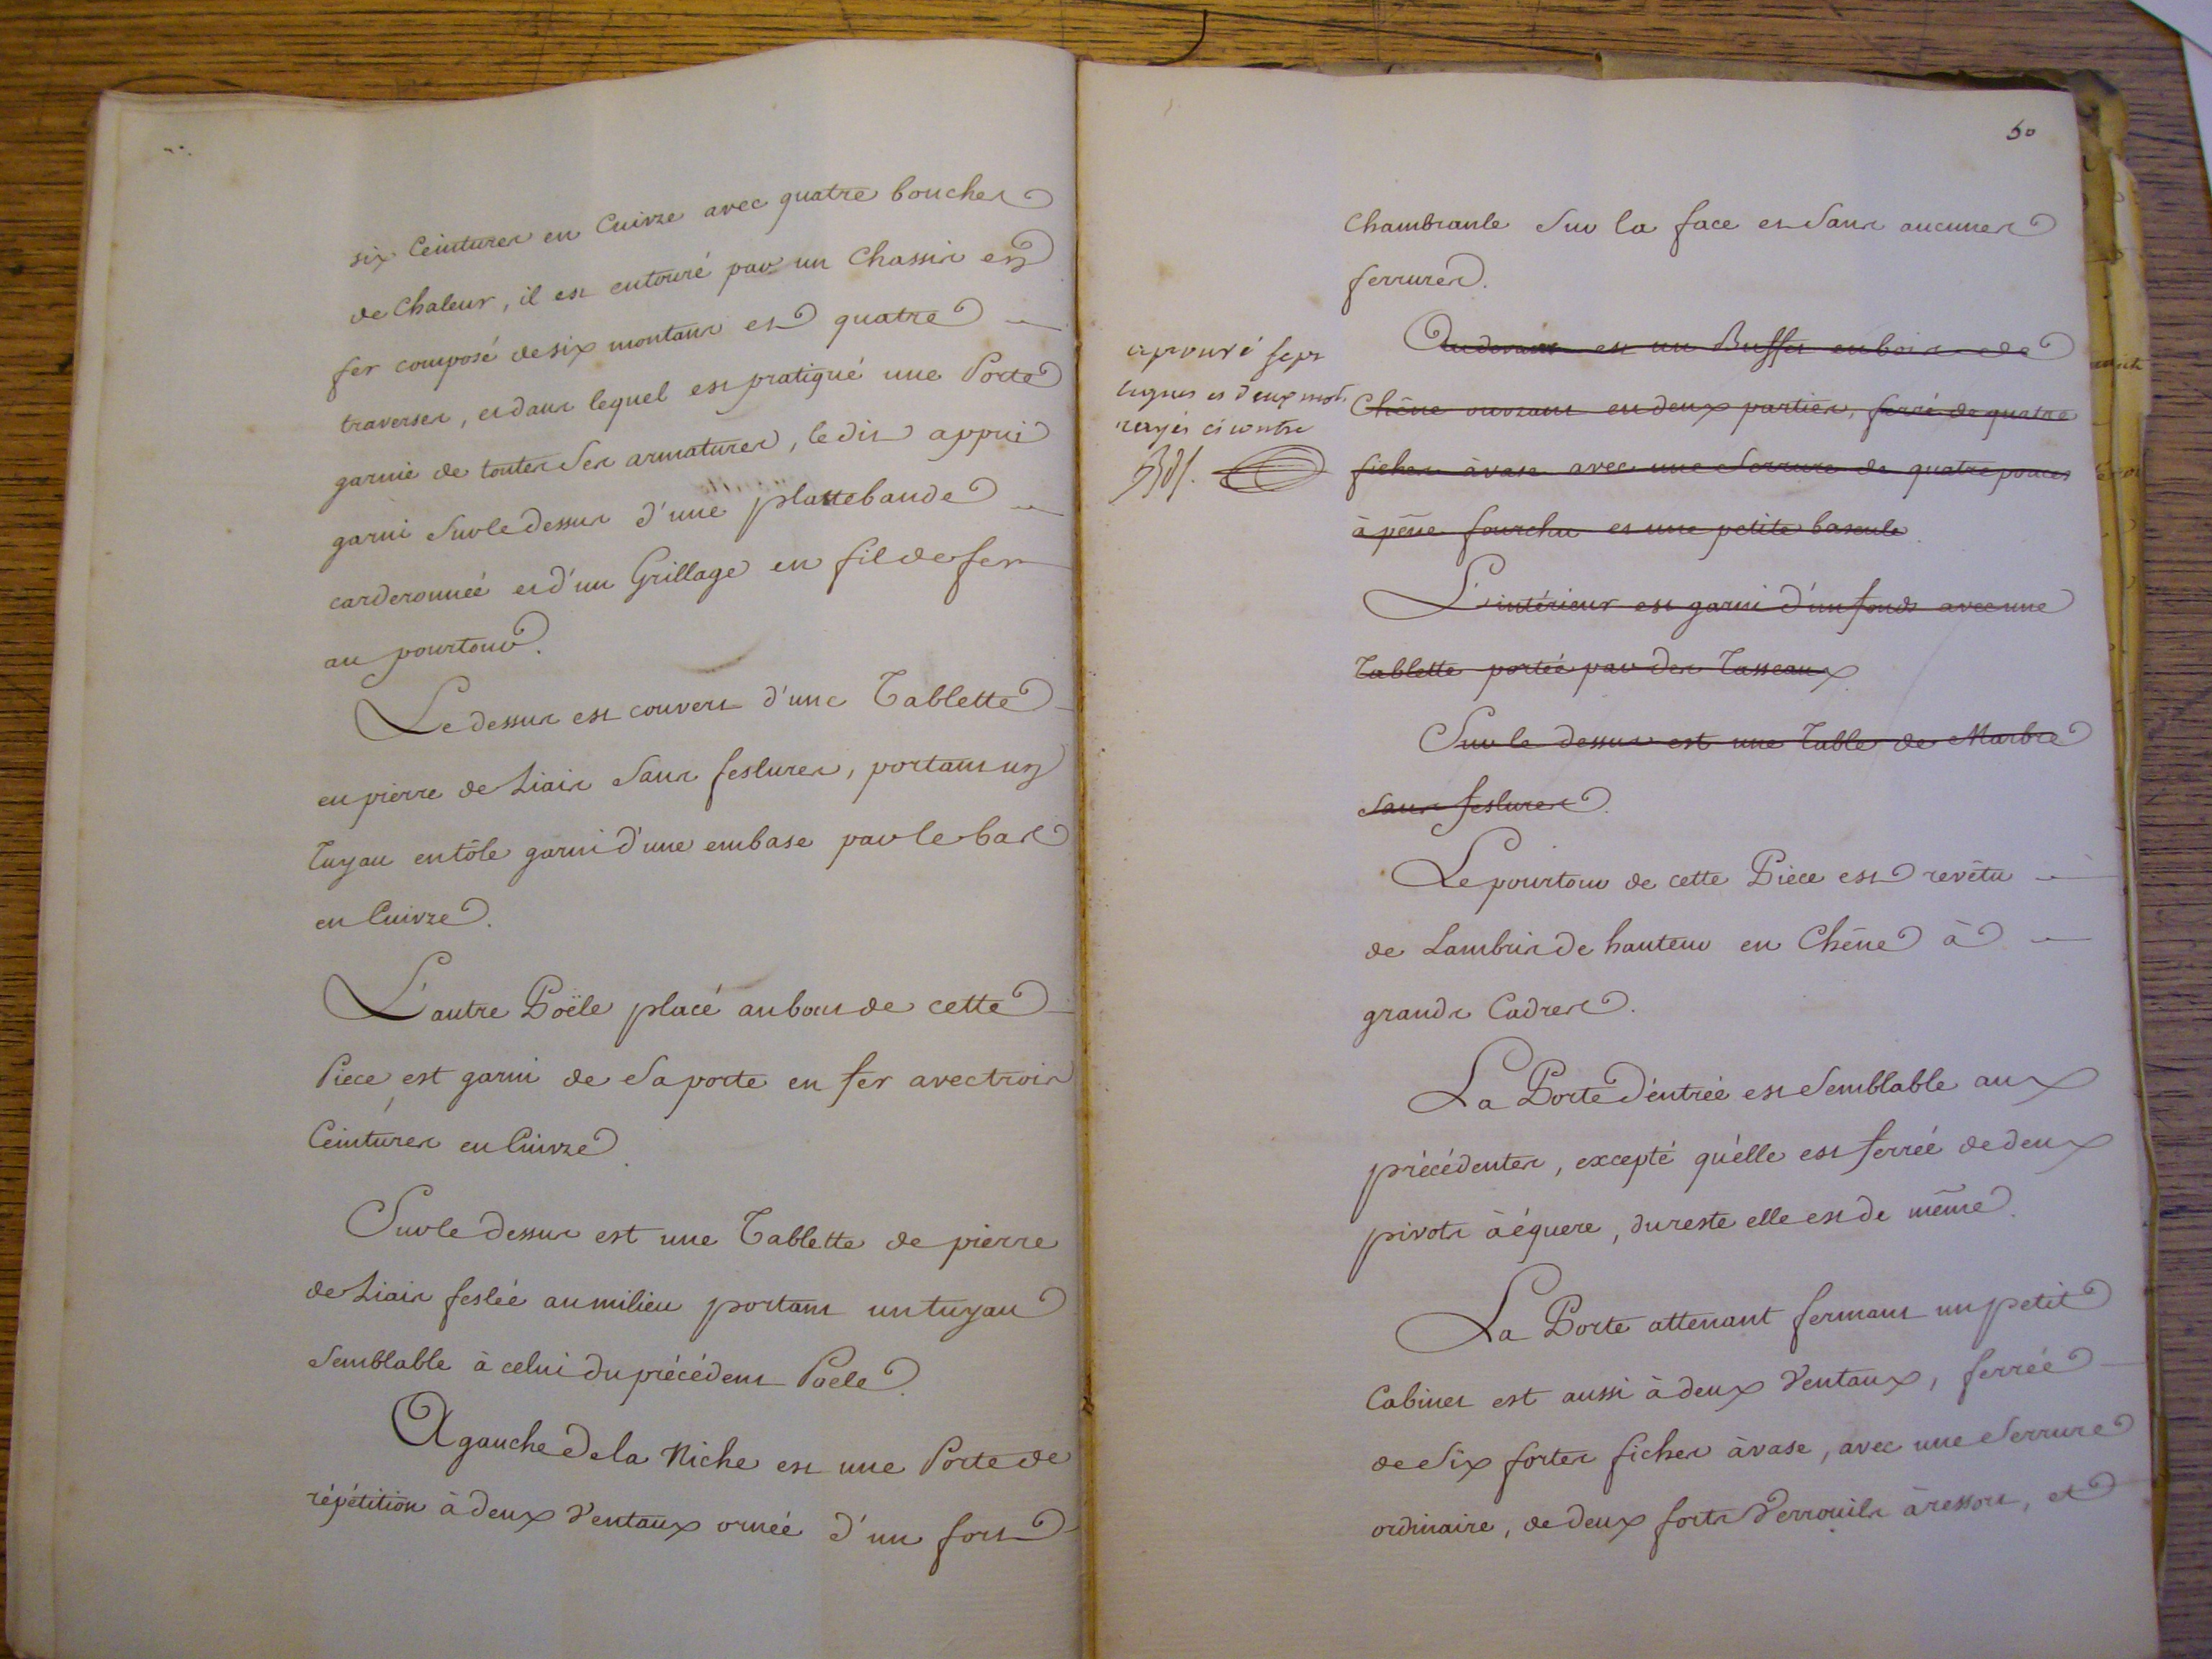 six Ceintures en Cuivre avec quatre bouches
de Chaleur, il est entouré par un Chassis en
fer composé de six montans et quatre
traverses, et dans lequel est pratiqué une Porte
garnie de toutes Ses armatures, le dit appui
garni Sur le dessus d'une plattebande
carderonnée et d'un Grillage en fil de fer
au pourtour.
Le dessus est couvert d'une Tablette
en pierre de Liais Sans feslures, portant un
Tuyau en tôle garni d'une embase par le bas
en Cuivre.
L'autre Poële placé au bout de cette
Piece est garni de Sa porte en fer avec trois
Ceintures en Cuivre.
Sur le dessus est une Tablette de pierre
de Liais feslée au milieu portant un tuyau
Semblable à celui du précédent Poele.
A gauche de la Niche est une Porte de
répétition à deux Ventaux ornée d'un fort
50
Chambranle Sur la face et Sans aucunes
ferrures.
Au devant est un Buffet en bois de
Chêne ouvrant en deux parties, ferré de quatre
fiches à vase avec une Serrure de quatre pouces
à pêne fourchu et une petite bascule.
L'intérieur est garni d'un fonds avec une
Tablette portée par des Tasseaux.
Sur le dessus est une Table de Marbre
Sans feslures.
aprouvé sept
lignes et deux mots
rayés ci contre
Le pourtour de cette Piece est revêtu
de Lambris de hauteur en Chêne à
grands Cadres.
La Porte d'entrée est Semblable aux
précédentes, excepté qu'elle est ferrée de deux
pivots à équere, du reste elle est de même.
La Porte attenant fermant un petit
Cabinet est aussi à deux Ventaux, ferrée
de Six fortes fiches à vase, avec une Serrure
ordinaire, de deux forts Verrouils à ressort, et